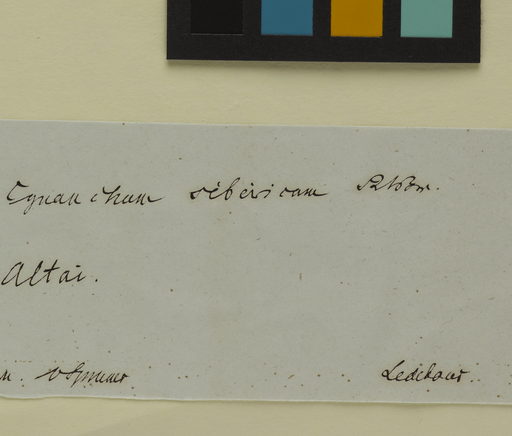 Cynanchum sibiricum RBr.
Altai.
Ledebour.